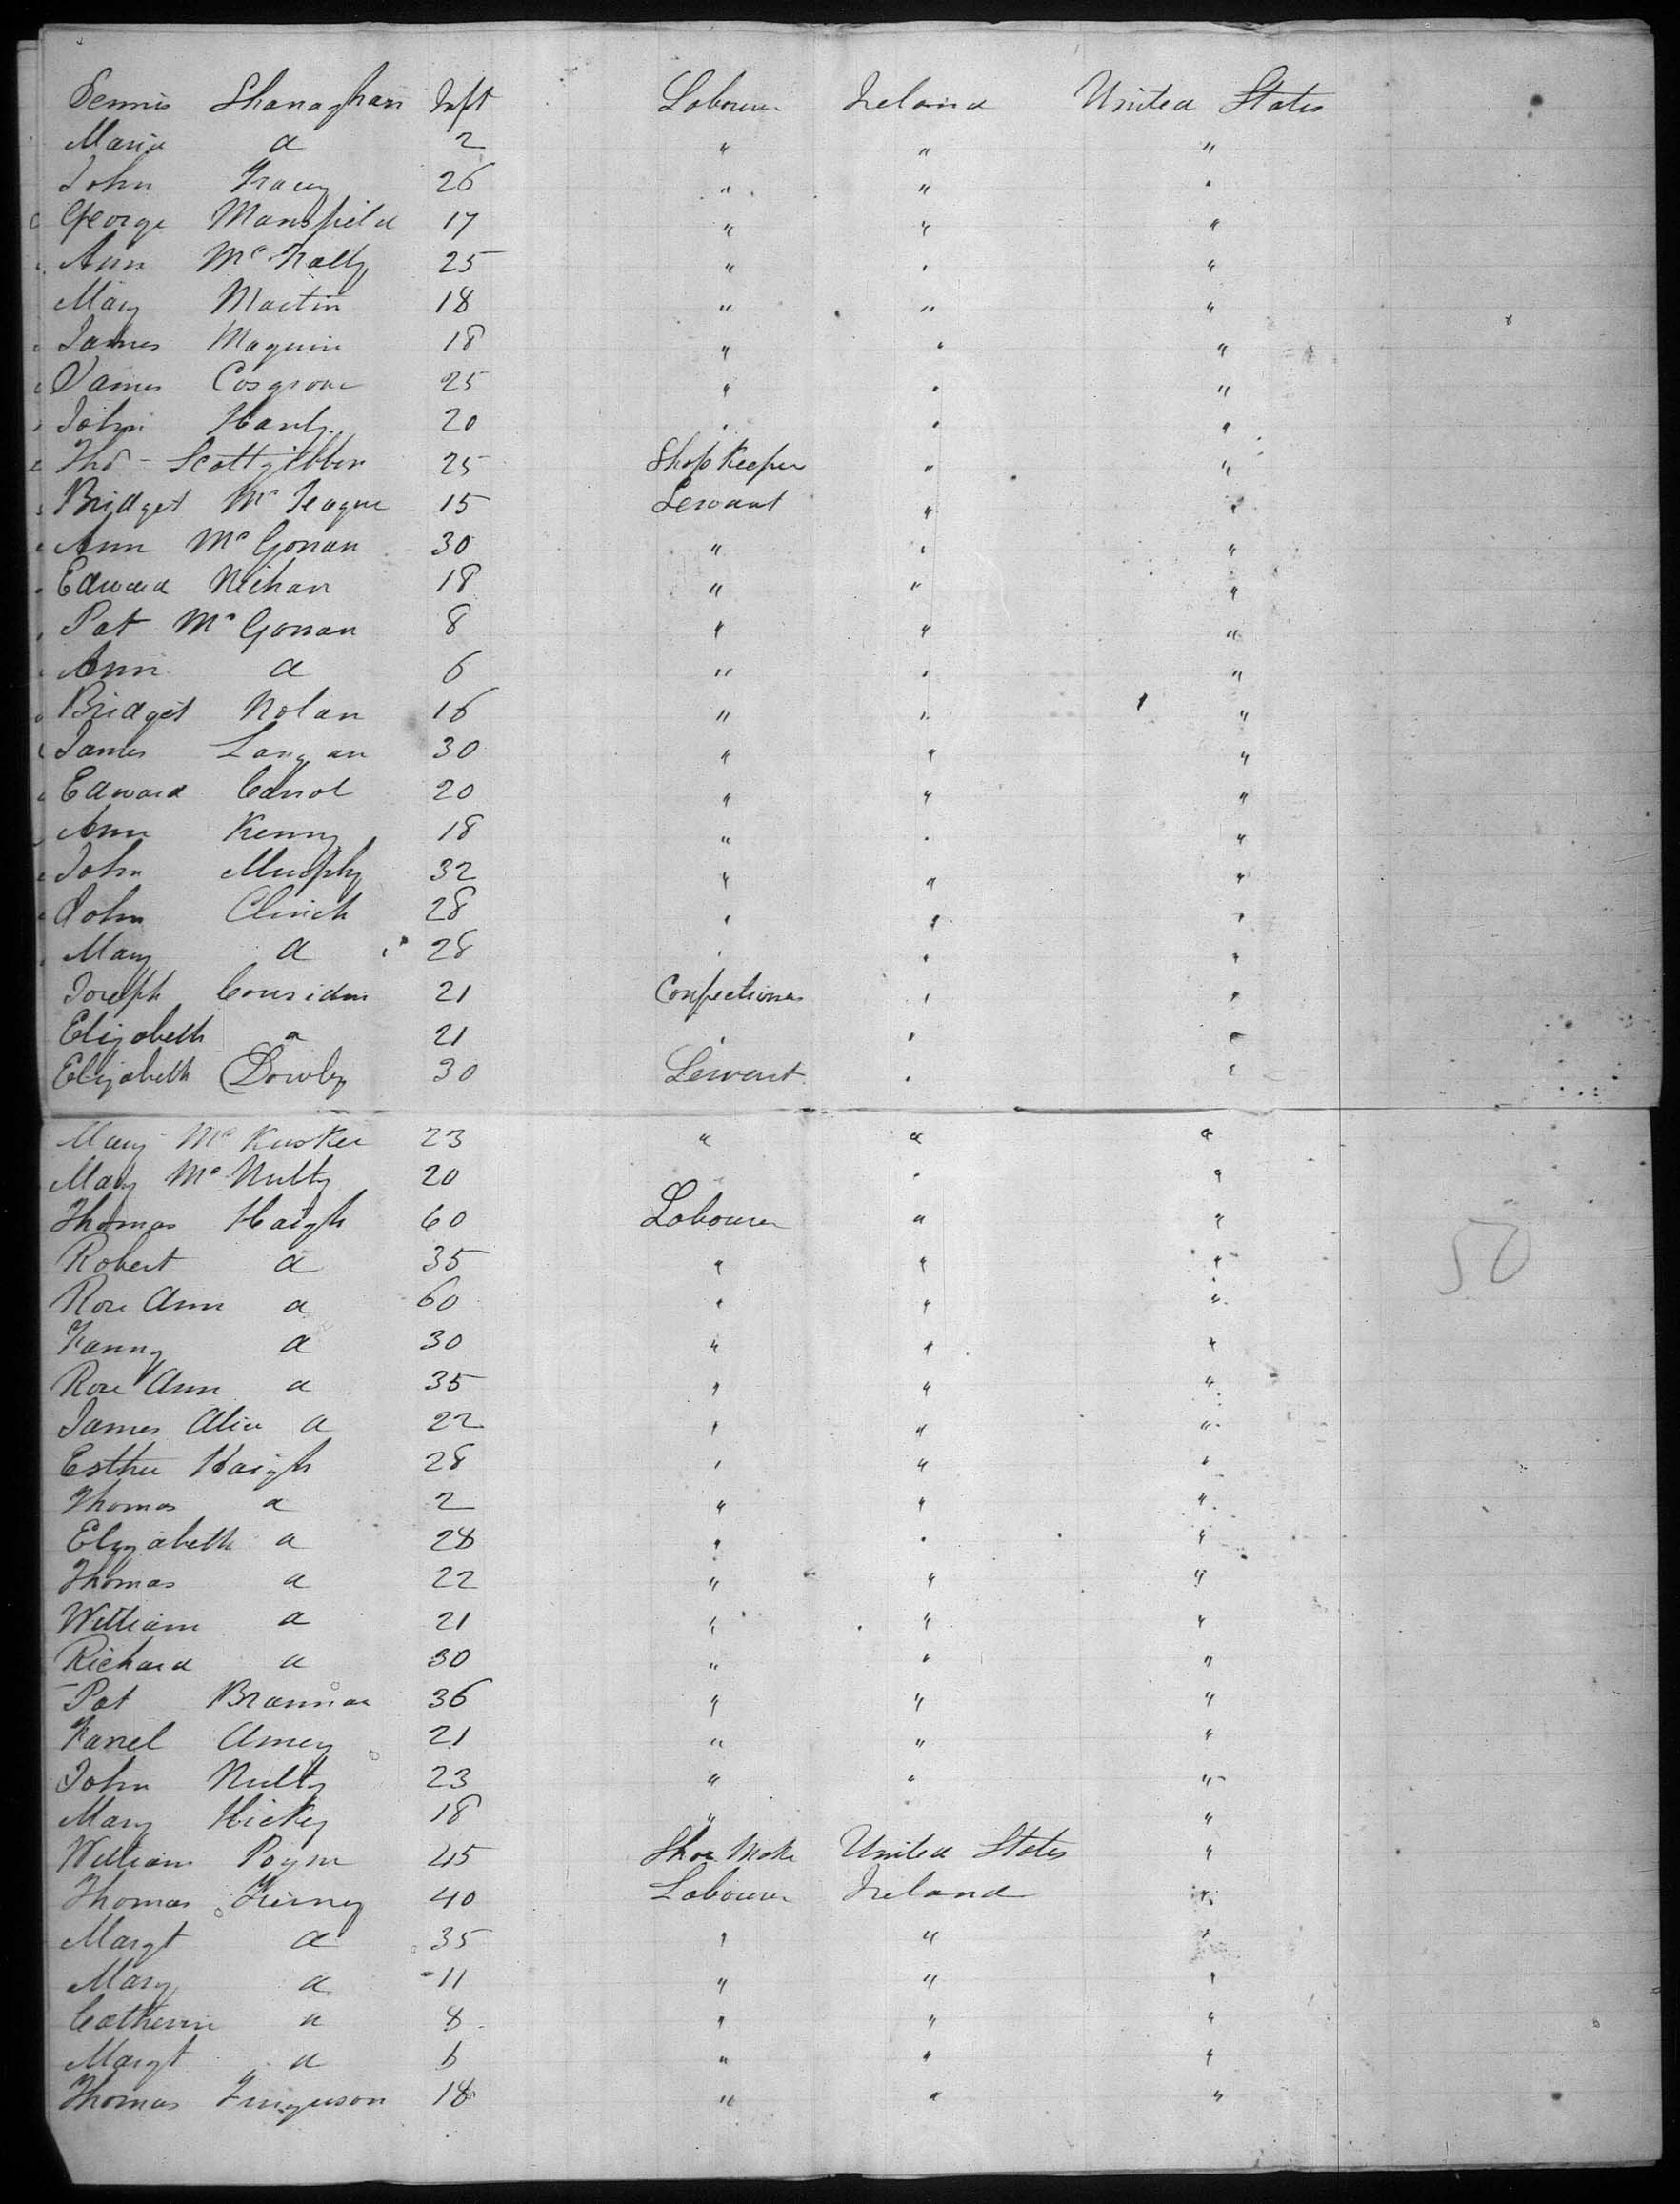 Dennis Shanaghan Inft Labourer Ireland United States
Maria a 2 " " "
John Tracey 26 " " "
George Mansfield 17 " " "
Ann Mc Nalty 25 " " "
Mary Martin 18 " " "
James Maguire 18 " " "
James Cosgrove 25 " " "
John Hanly 20 " " "
Thos - 25 Shop Keeper " "
Bridget Mc Teague 15 Servant " "
Ann Mc Gowan 30 " " "
Edward 18 " " "
Pat Mc Gowan 8 " " "
Ann a 6 " " "
Bridget Nolan 16 " " "
James Langan 30 " " "
Edward Carrol 20 " " "
Ann Kenny 18 " " "
John Murphy 32 " " "
John Clinch 28 " " "
Mary a 28 " " "
Joseph Considin 21 Confectioner " "
Elizabeth a 21 " " "
Elizabeth Dowly 30 Servant " "
Mary Mc Kusker 23 " " "
Mary Mc Nulty 20 " "
Thomas Haigh 60 Labourer " "
Robert a 35 " " "
Rose Ann a 60 " " "
Fanny a 30 " " "
Rose Ann a 35 " " "
James Alice a 22 " " "
Esther Haigh 28 " " "
Thomas a 2 " " "
Elizabeth a 28 " " "
Thomas a 22 " " "
William a 21 " " "
Richard a 30 " " "
Pat Brannan 36 " " "
Farrel 21 " " "
John Nulty 23 " " "
Mary Hickey 18 " "
William Payne 45 Shoe Make United States "
Thomas Tierney 40 Labourer Ireland "
Margt a 35 " " "
Mary a 11 " " "
Catherine a 8 " " "
Margt a 6 " " "
Thomas Furguson 18 " " "
50